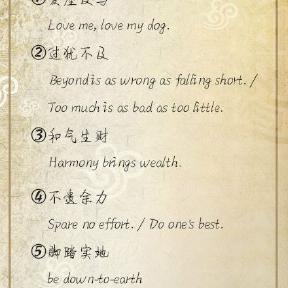 ① 爱屋及乌
Love me, love my dog.
② 过犹不及
Beyond is as wrong as falling short. /
Too much is as bad as too little.
③ 和气生财
Harmony brings wealth.
④ 不遗余力
Spare no effort. / Do one's best.
⑤ 脚踏实地
be down-to-earth